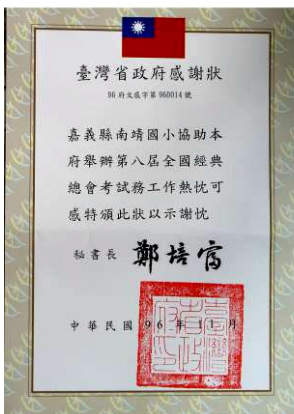 臺灣省政府感謝狀
96府文感字第960014號
嘉義縣南靖國小協助本
府舉辦第八屆全國經典
總會考試務工作熱忱可
感特頒此狀以示謝忱
秘書長 鄭培富
中華民國96年11月
臺灣
省政
府印